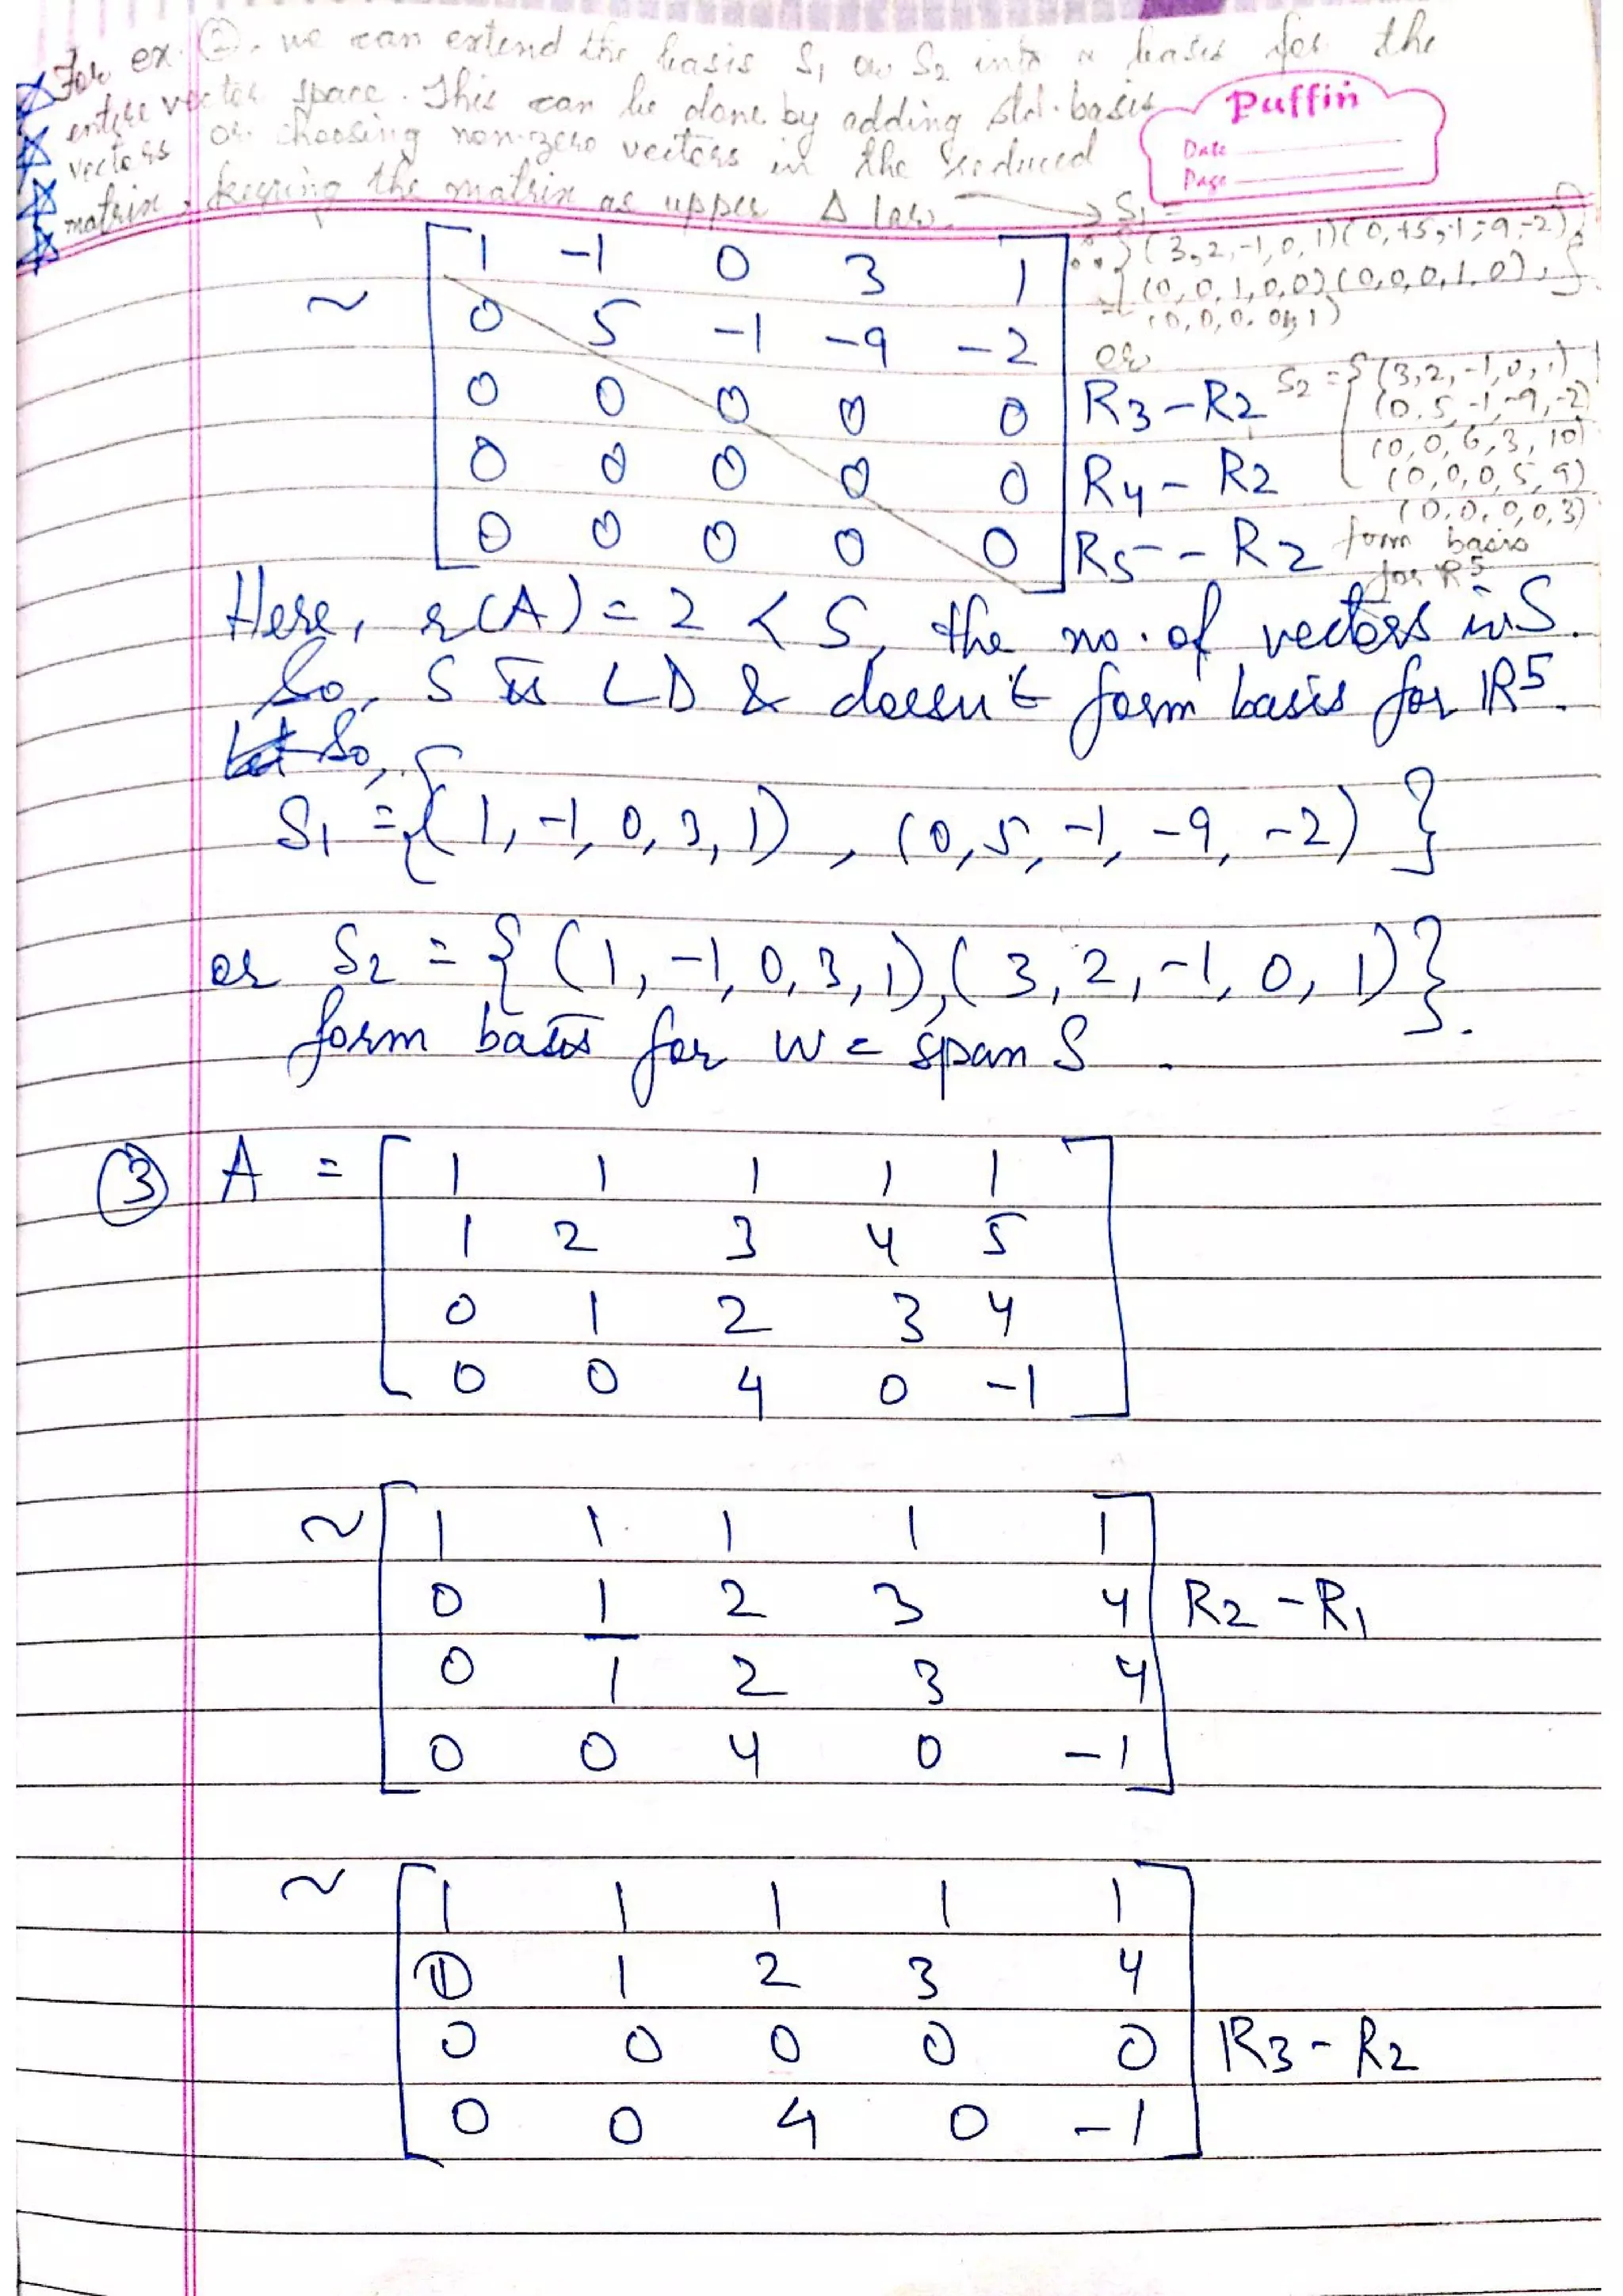 For ex. ②, we can extend the basis S1 or S2 into a basis for the
entire vector space. This can be done by adding std. basis
vectors or choosing non-zero vectors in the reduced
matrix, keeping the matrix as upper Δ lar. → S1 =
Puffin
Date
Page
{(3,2,-1,0,1)(0,+5,-1,-9,-2),
(0,0,1,0,0)(0,0,0,1,0),
(0,0,0,0,1)}
or
S2 = {(3,2,-1,0,1)
(0,5,-1,-9,-2)
(0,0,6,3,10)
(0,0,0,5,9)
(0,0,0,0,3)
form basis
for R5
~ [ 1 -1 0 3 1
0 5 -1 -9 -2
0 0 0 0 0 R3-R2
0 0 0 0 0 R4-R2
0 0 0 0 0 ] R5--R2
Here, r(A) = 2 < 5, the no. of vectors in S.
So, S is LD & doesn't form basis for IR5.
So,
S1 = {(1,-1,0,3,1), (0,5,-1,-9,-2)}
or S2 = {(1,-1,0,3,1),(3,2,-1,0,1)}.
form basis for W = span S.
③ A = [ 1 1 1 1 1
1 2 3 4 5
0 1 2 3 4
0 0 4 0 -1 ]
~ [ 1 1 1 1 1
0 1 2 3 4 R2-R1
0 1 2 3 4
0 0 4 0 -1 ]
~ [ 1 1 1 1 1
0 1 2 3 4
0 0 0 0 0 R3-R2
0 0 4 0 -1 ]